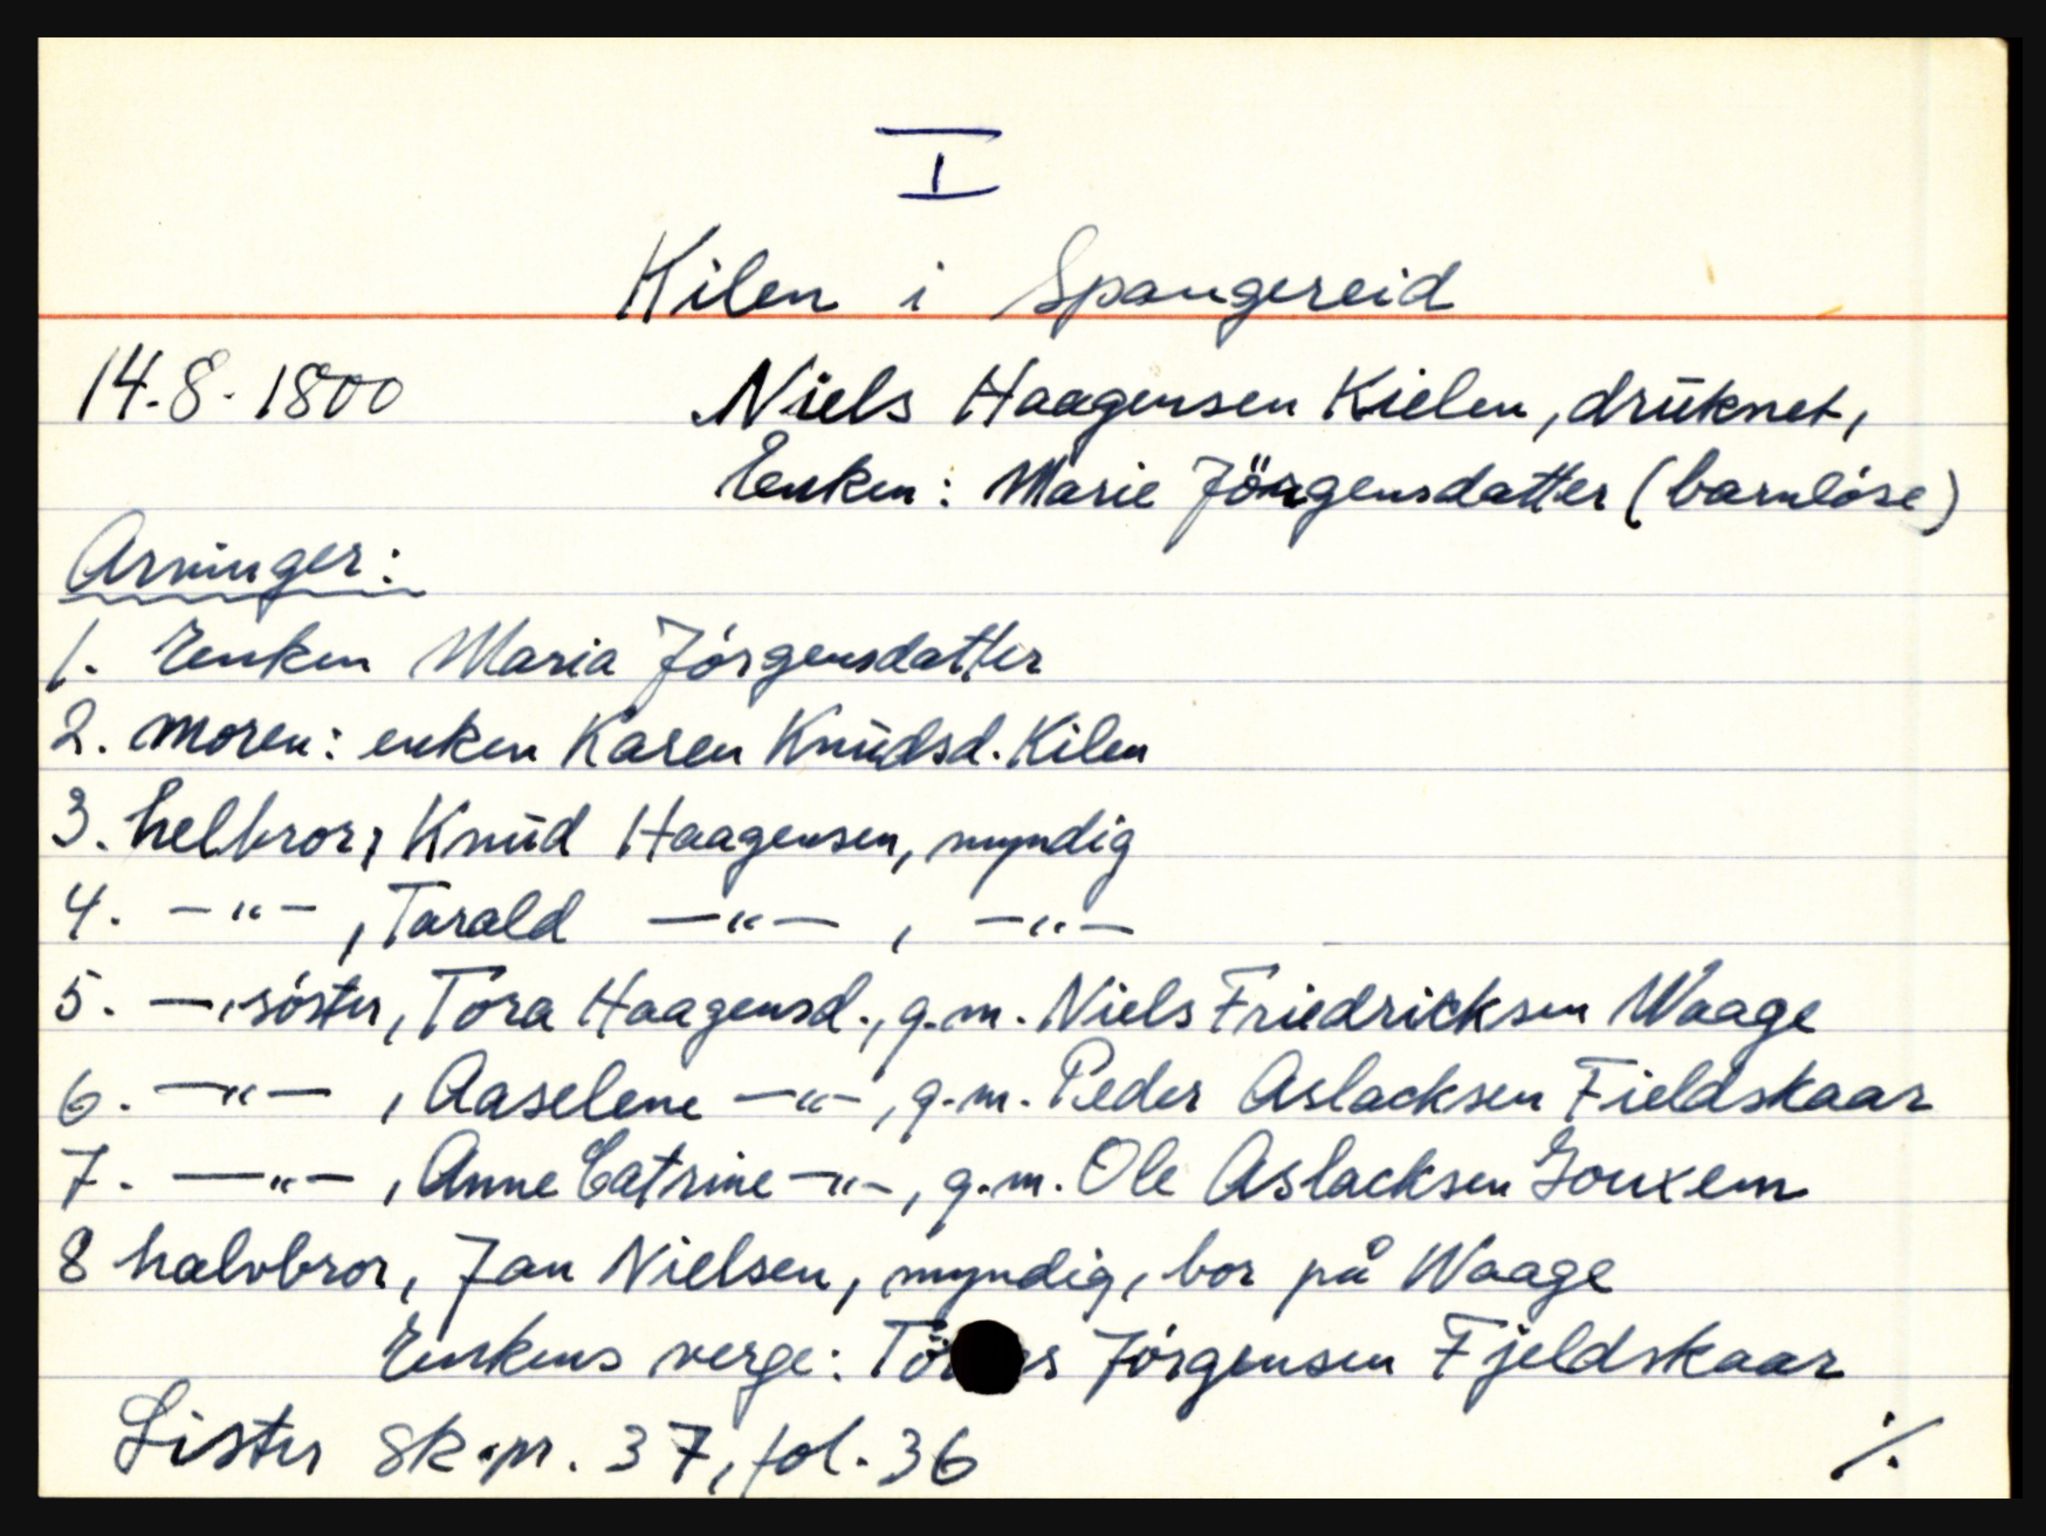 I
Kilen i Spangereid
14.8.1800 Niels Haagensen Kielen, druknet,
Enken: Marie Jörgensdatter (barnløse)
Arvinger:
1. Enken Maria Jórgensdatter
2. Moren: enken Karen Knudsd. Kilen
3. helbror, Knud Haagensen, myndig
4. —"—, Tarald —"—, —"—
5. —"søster, Tora Haagensd., g.m. Niels Friedricksen Waage
6. —"—, Aaselene —"—, g.m. Peder Aslacksen Fieldskaar
7. —"—, Anne Catrine —"—, g.m. Ole Aslacksen
8 halvbror, Jan Nielsen, myndig, bor på Waage
Enkens verge: Jórgensen Fjeldskaar
Lister sk.pr. 37, fol. 36
./.